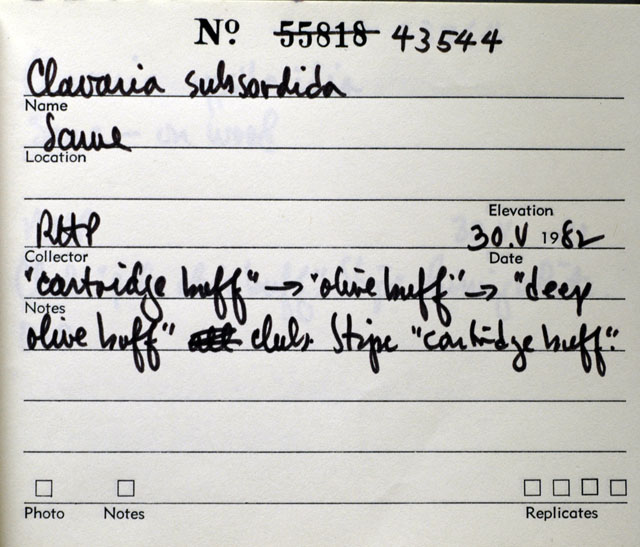 Nº 55818 43544
Clavaria subsordida
Name
Same
Location
Elevation
RHP 30.V 1982
Collector Date
"cartridge buff" → "olive buff" → "deep
Notes
olive buff" club. Stipe "cartridge buff".
Photo Notes Replicates